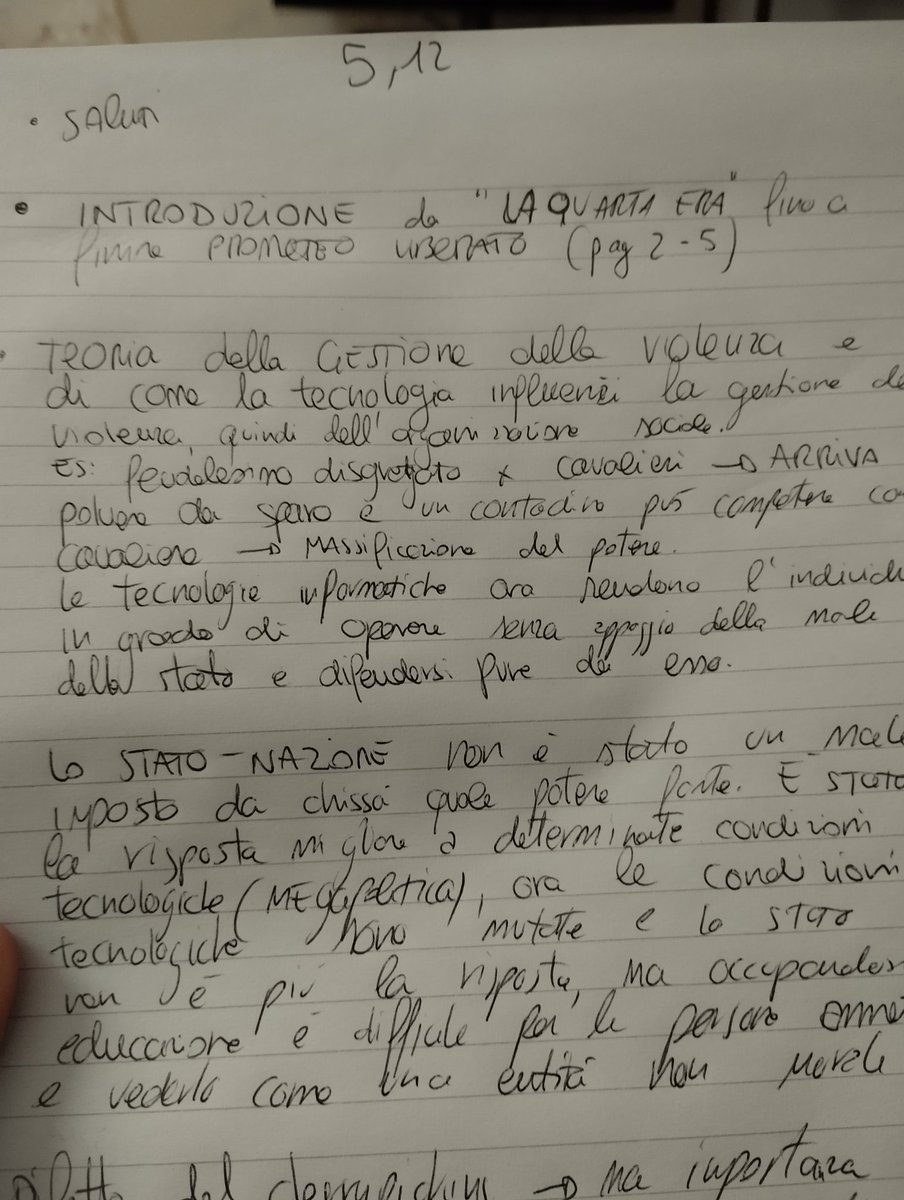 5,12
• SAluti
• INTRODUZIONE da "LA QUARTA ERA" fino a
finire PROMETEO LIBERATO (pag 2-5)
• TEORIA della GESTIONE della violenza e
di come la tecnologia influenzi la gestione de
violenza, quindi dell'organizzazione sociale.
ES: feudalesimo disgregato x cavalieri → ARRIVA
polvere da sparo e un contadino può competere co
cavaliere → MASSificazione del potere.
le tecnologie informatiche ora rendono l'individu
in grado di operare senza appoggio della mole
dello stato e difendersi pure da esso.
lo STATO-NAZIONE non è stato un male
imposto da chissà quale potere forte. È STATO
la risposta migliore a determinate condizioni
tecnologiche (MEGAPOLITICA), ora le condizioni
tecnologiche sono mutate e lo STATO
non è più la risposta, ma occupandosi
educazione è difficile per le persone
e vederlo come una entità non morale
del → ma importanza